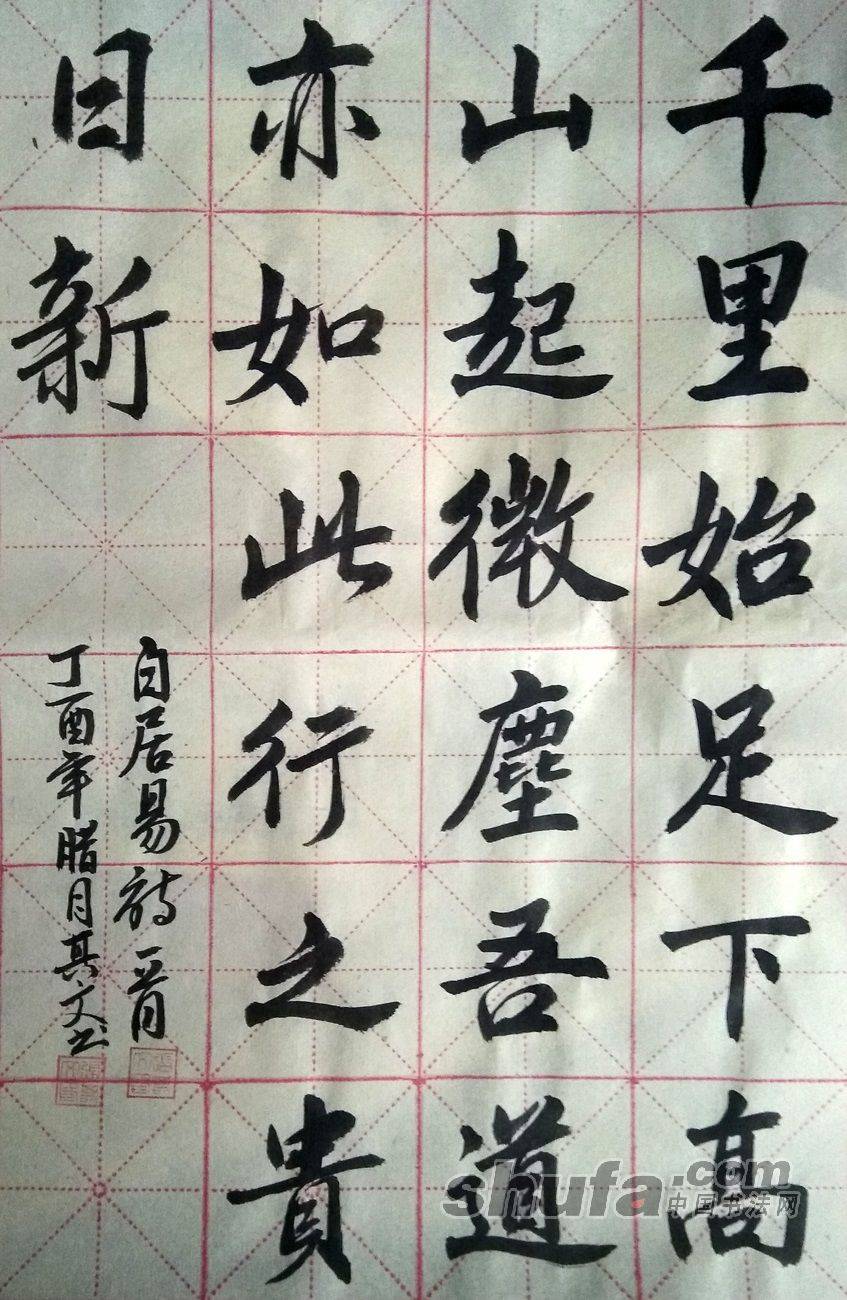 千里始足下高
山起微塵吾道
亦如此行之貴
日新
白居易诗一首
丁酉年腊月其文书
shufa.com
中国书法网